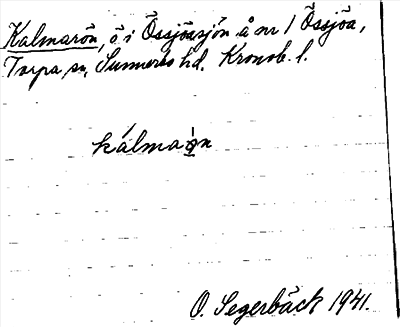 Kalmarön, ö i Össjöasjön å nr 1 Össjöa,
Torpa sn, Sunnerbo hd. Kronob. l.
kálmaòn
O. Segerbäck 1941.